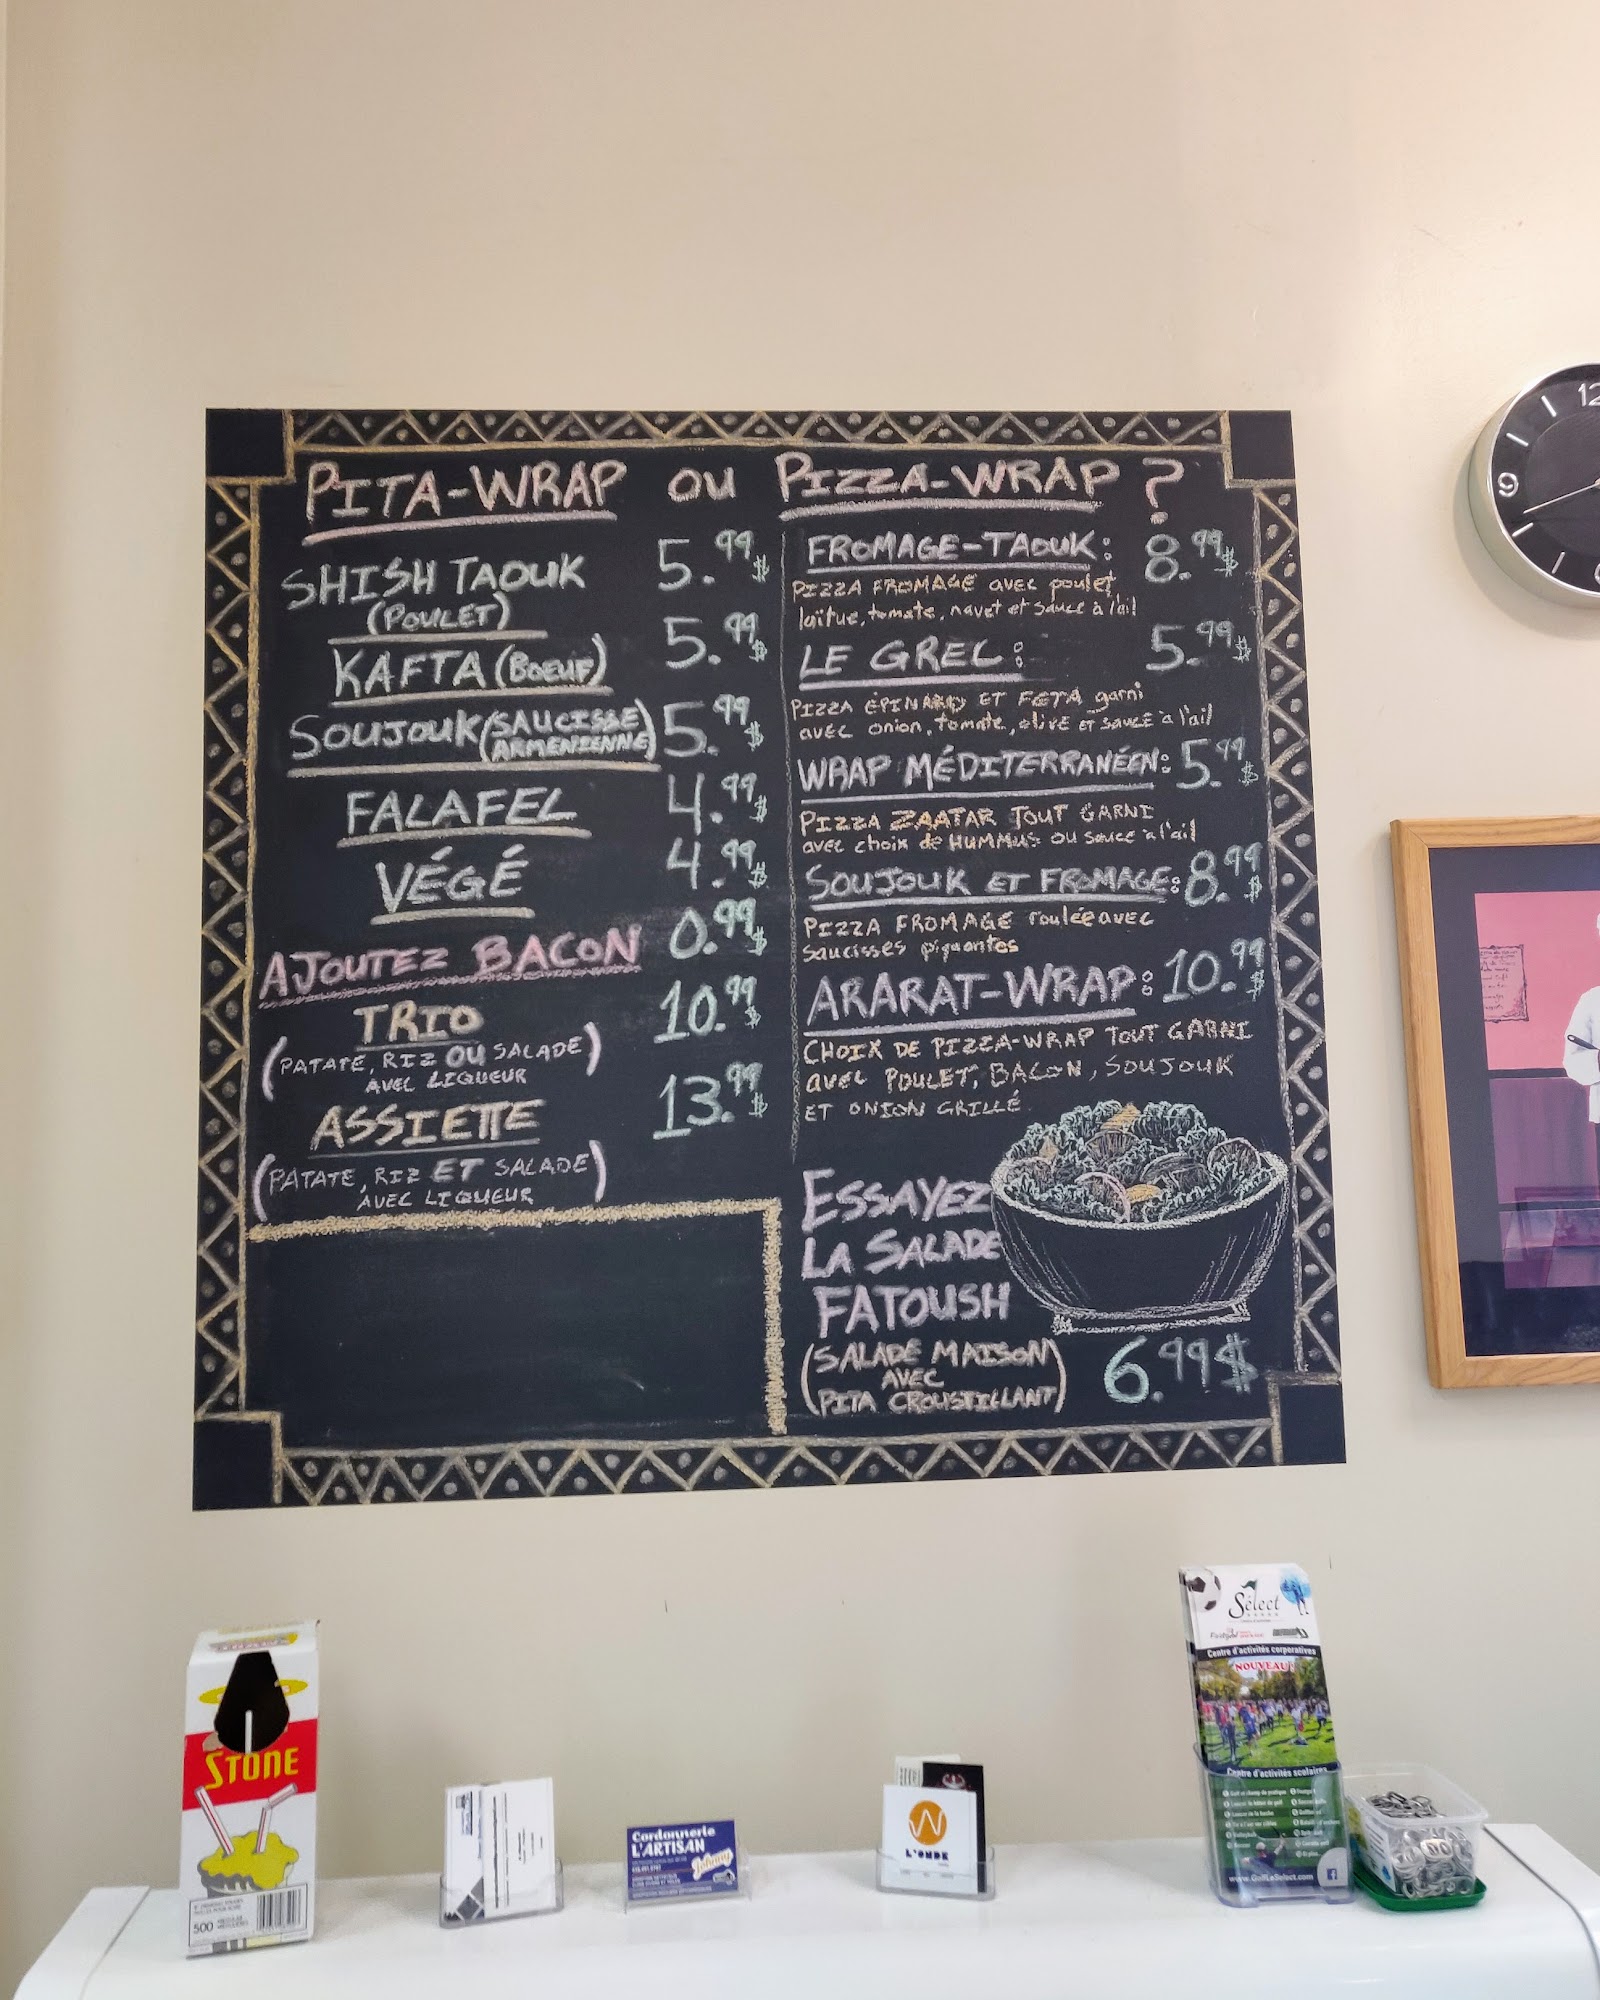 PITA-WRAP OU PIZZA-WRAP ?
SHISH TAOUK 5.99$
(POULET)
KAFTA (BOEUF) 5.99$
SOUJOUK (SAUCISSE ARMENIENNE) 5.99$
FALAFEL 4.99$
VÉGÉ 4.99$
AJOUTEZ BACON 0.99$
TRIO 10.99$
(PATATE, RIZ OU SALADE
AVEC LIQUEUR)
ASSIETTE 13.99$
(PATATE, RIZ ET SALADE
AVEC LIQUEUR)
FROMAGE-TAOUK: 8.99$
PIZZA FROMAGE avec poulet,
laitue, tomate, navet et sauce à l'ail
LE GREC: 5.99$
PIZZA ÉPINARD ET FETA garni
avec onion, tomate, olive et sauce à l'ail
WRAP MÉDITERRANÉEN: 5.99$
PIZZA ZAATAR TOUT GARNI
avec choix de HUMMUS ou sauce à l'ail
SOUJOUK ET FROMAGE: 8.99$
PIZZA FROMAGE roulée avec
saucisses piquantes
ARARAT-WRAP: 10.99$
CHOIX DE PIZZA-WRAP TOUT GARNI
avec POULET, BACON, SOUJOUK
ET ONION GRILLÉ
ESSAYEZ
LA SALADE
FATOUSH
(SALADE MAISON
AVEC
PITA CROUSTILLANT) 6.99$
12
9
STONE
500
Cordonnerie
L'ARTISAN
Johnny
L'ONDE
Sélect
Centre d'activités corporatives
NOUVEAU!
Centre d'activités scolaires
www.GolfLeSelect.com